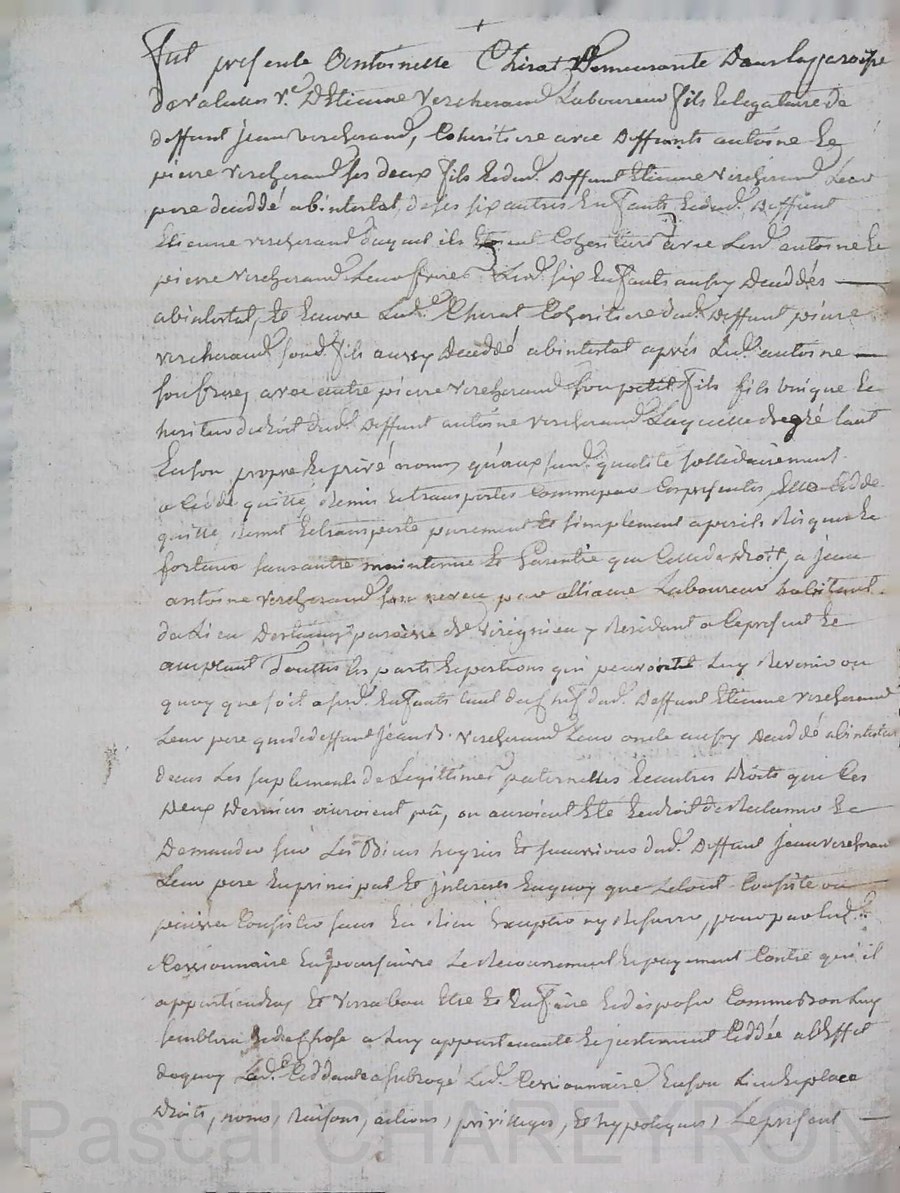 +
Fut presente Antoinette Chirat Demeurante Dans la paroisse
de valeües v.e D'Etienne vercherand Laboureur fils & legataire de
deffunt jean vercherand, Coheritiere avec Deffunts antoine &
pierre vercherand ses deux fils & dud. Deffunt Etienne vercherand Leur
pere deceddé abintestat, de ses six autres Enfants & dud. Deffunt
Etienne vercherand duquel ils Etoient Coheritiers avec Lesd. antoine &
pierre vercherand Leurs freres Lesd. six Enfants aussy Deceddés
abintestat, & Encore Lad. Chirat Coheritiere dud. Deffunt pierre
vercherand sond. fils aussy Deceddé abintestat aprés Led. antoine
son frere, avec autre pierre vercherand son petit fils fils unique &
heritier de droit dud. Deffunt antoine vercherand Laquelle de gré tant
En son propre & privé nom, qu'aux susd. qualité sollidairement
a Ceddé quitté, Remis & transporté Comme par Ces presentes, Elle Cedde
quitte, Remet & transporte purement & simplement a perils Risques &
fortune sans autre maintenue & Garentie que Celle de droit, a jean
antoine vercherand son neveu par alliance Laboureur habitant
du Lieu paroisse de virignieu y Residant a Ce present &
acceptant Touttes les parts & portions qui peuvoient Luy Revenir ou
quoy que soit a sesd. Enfants tant du chef dud. Deffunt Etienne vercherand
Leur pere que de deffunt jean vercherand Leur oncle aussy Deceddé abintestat
dans Les suplements de Legittimes paternelles & autres Droits que Ces
Deux Derniers auroient pû, ou auroient Eté En droit de Reclamer &
Demander sur Les Biens & successions dud. Deffunt jean vercherand
Leur pere En principal & jnterets En quoy que Letout Consiste ou
puisse Consister sans En Rien Excepter ny Reserver, pour par led.
Cessionnaire En poursuivre Le Recouvrement & payement Contre qu'il
appartiendra Et verra bon Etre & En Faire & disposer Comme bon Luy
semblera de chose a Luy appartenante & justement Ceddée a L'Effet
dequoy Lad. Ceddante a subrogé Led. Cessionnaire En son Lieu & place
Droits, noms, Raisons, actions, privileges, & hypoteques, Le present
Pascal CHAREYRON